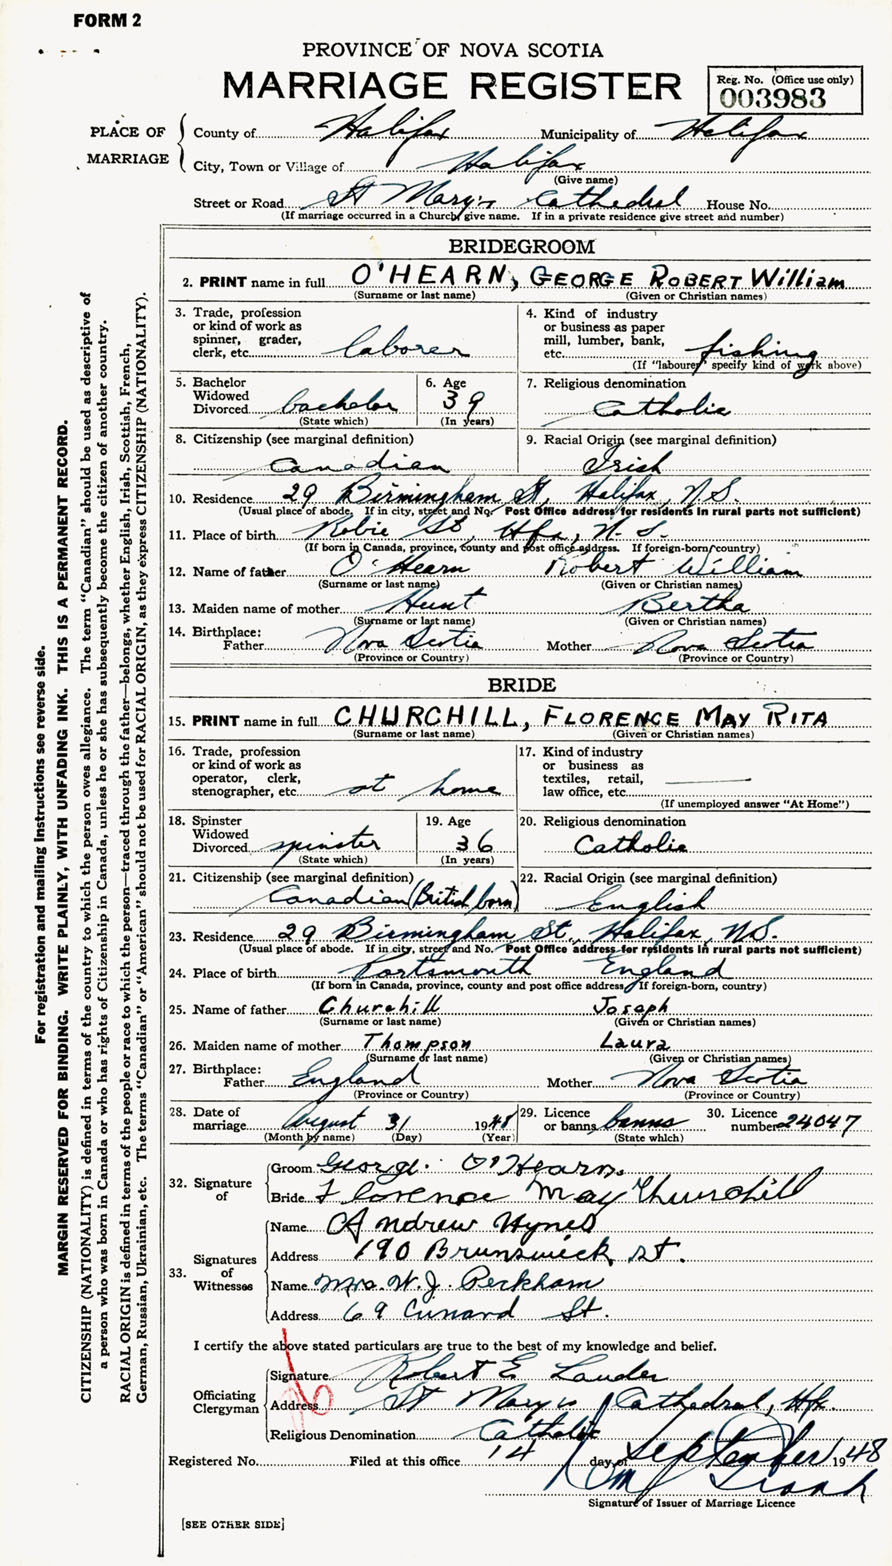 FORM 2
PROVINCE OF NOVA SCOTIA
MARRIAGE REGISTER
Reg. No. (Office use only)
003983
PLACE OF MARRIAGE
County of Halifax Municipality of Halifax
City, Town or Village of Halifax
(Give name)
Street or Road St Mary's Cathedral House No.
(If marriage occurred in a Church, give name. If in a private residence give street and number)
BRIDEGROOM
2. PRINT name in full O'HEARN, GEORGE ROBERT William
(Surname or last name) (Given or Christian names)
3. Trade, profession or kind of work as spinner, grader, clerk, etc. laborer
4. Kind of industry or business as paper mill, lumber, bank, etc. fishing
(If "labourer" specify kind of work above)
5. Bachelor Widowed Divorced bachelor
(State which)
6. Age 39
(In years)
7. Religious denomination
Catholic
8. Citizenship (see marginal definition)
Canadian
9. Racial Origin (see marginal definition)
Irish
10. Residence 29 Birmingham St, Halifax, N.S.
(Usual place of abode. If in city, street and No. Post Office address for residents in rural parts not sufficient)
11. Place of birth Robie St, Hfx, N.S.
(If born in Canada, province, county and post office address. If foreign-born, country)
12. Name of father O'Hearn Robert William
(Surname or last name) (Given or Christian names)
13. Maiden name of mother Hunt Bertha
(Surname or last name) (Given or Christian names)
14. Birthplace:
Father Nova Scotia Mother Nova Scotia
(Province or Country) (Province or Country)
BRIDE
15. PRINT name in full CHURCHILL, FLORENCE MAY RITA
(Surname or last name) (Given or Christian names)
16. Trade, profession or kind of work as operator, clerk, stenographer, etc. at home
17. Kind of industry or business as textiles, retail, law office, etc.
(If unemployed answer "At Home")
18. Spinster Widowed Divorced spinster
(State which)
19. Age 36
(In years)
20. Religious denomination
Catholic
21. Citizenship (see marginal definition)
Canadian (British born)
22. Racial Origin (see marginal definition)
English
23. Residence 29 Birmingham St., Halifax, N.S.
(Usual place of abode. If in city, street and No. Post Office address for residents in rural parts not sufficient)
24. Place of birth Portsmouth England
(If born in Canada, province, county and post office address. If foreign-born, country)
25. Name of father Churchill Joseph
(Surname or last name) (Given or Christian names)
26. Maiden name of mother Thompson Laura
(Surname or last name) (Given or Christian names)
27. Birthplace:
Father England Mother Nova Scotia
(Province or Country) (Province or Country)
28. Date of marriage August 31 1948
(Month by name) (Day) (Year)
29. Licence or banns banns
(State which)
30. Licence number 24047
32. Signature of
Groom George O'Hearn
Bride Florence May Churchill
33. Signatures of Witnesses
Name Andrew Hynes
Address 190 Brunswick St.
Name Mrs. W. J. Peckham
Address 69 Cunard St.
I certify the above stated particulars are true to the best of my knowledge and belief.
Officiating Clergyman
Signature Robert E Lauder
Address St Mary's Cathedral, Hfx.
Religious Denomination Catholic
Registered No. Filed at this office 14 day of September 1948
Signature of Issuer of Marriage Licence
[SEE OTHER SIDE]
For registration and mailing instructions see reverse side.
MARGIN RESERVED FOR BINDING. WRITE PLAINLY, WITH UNFADING INK. THIS IS A PERMANENT RECORD.
CITIZENSHIP (NATIONALITY) is defined in terms of the country to which the person owes allegiance. The term "Canadian" should be used as descriptive of
a person who was born in Canada or who has rights of Citizenship in Canada, unless he or she has subsequently become the citizen of another country.
RACIAL ORIGIN is defined in terms of the people or race to which the person—traced through the father—belongs, whether English, Irish, Scottish, French,
German, Russian, Ukrainian, etc. The terms "Canadian" or "American" should not be used for RACIAL ORIGIN, as they express CITIZENSHIP (NATIONALITY).